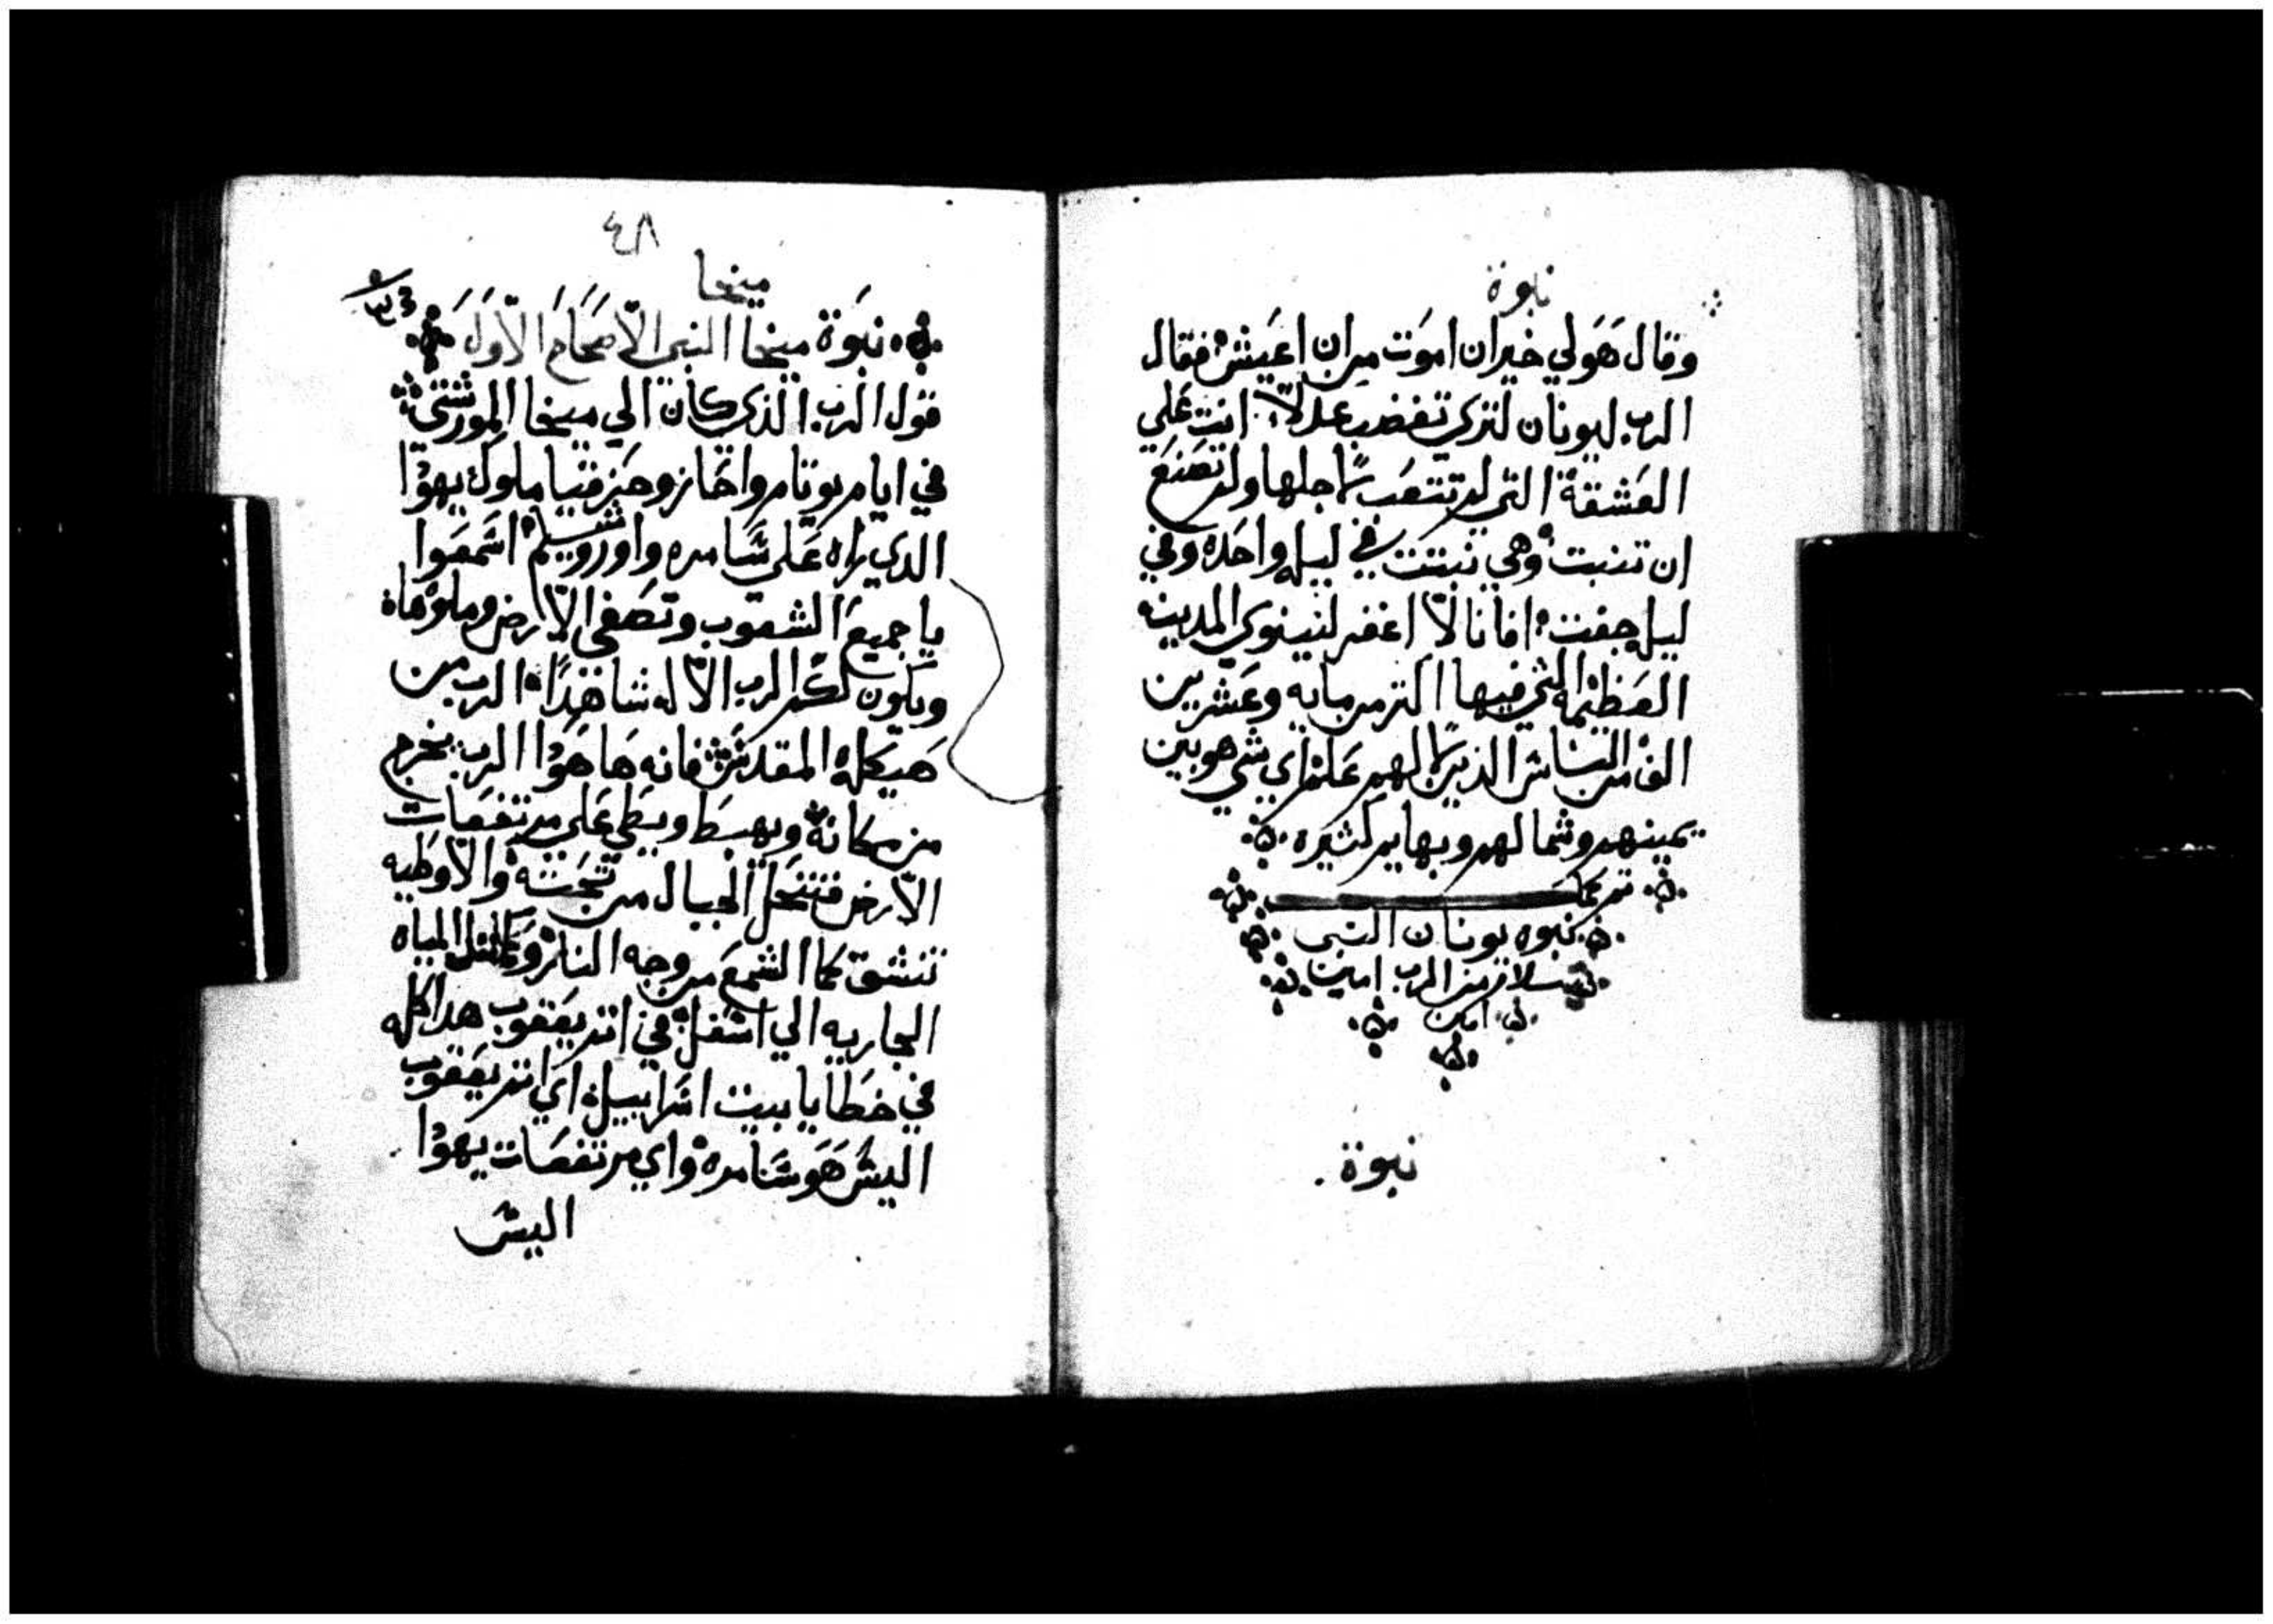 نبوة
وقال هو لي خير ان اموت من ان اعيش فقال
الرب ليونان لتري تغضب عدلاً انت علي
العشقة التي لم تتعب من اجلها ولم تصنع
ان تنبت وهي نبتت في ليله واحده وفي
ليله جفت افانا لا اغفر لنينوي المدينه
العظيمه التي فيها اكثر من مايه وعشرين
الف من الناس الذين لهم علم اي شي هو بين
يمينهم وشمالهم وبهايم كثيره
نبوه يونان النبي
بسلام من الرب امين
امين
نبوة
٤٨
ميخا
نبوة ميخا النبي الاصحاح الاول
قول الرب الذي كان الي ميخا المورشتي
في ايام يوتام واحاز وحزقيا ملوك يهودا
الدي راه علي سامره واورشليم اسمعوا
يا جميع الشعوب وتصغي الارض وملوها
ويكون لكم الرب الاله شاهداً الرب من
هيكله المقدس فانه ها هودا الرب يخرج
من مكانه ويهبط ويطي علي مرتفعات
الارض فتنحل الجبال من تحته والاوطيه
تنشق كما الشمع من وجه النار وكمثل المياه
الجاريه الي اسفل في اتم يعقوب هدا كله
في خطايا بيت اسراييل اي اتم يعقوب
اليس هو سامره واي مرتفعات يهودا
اليس